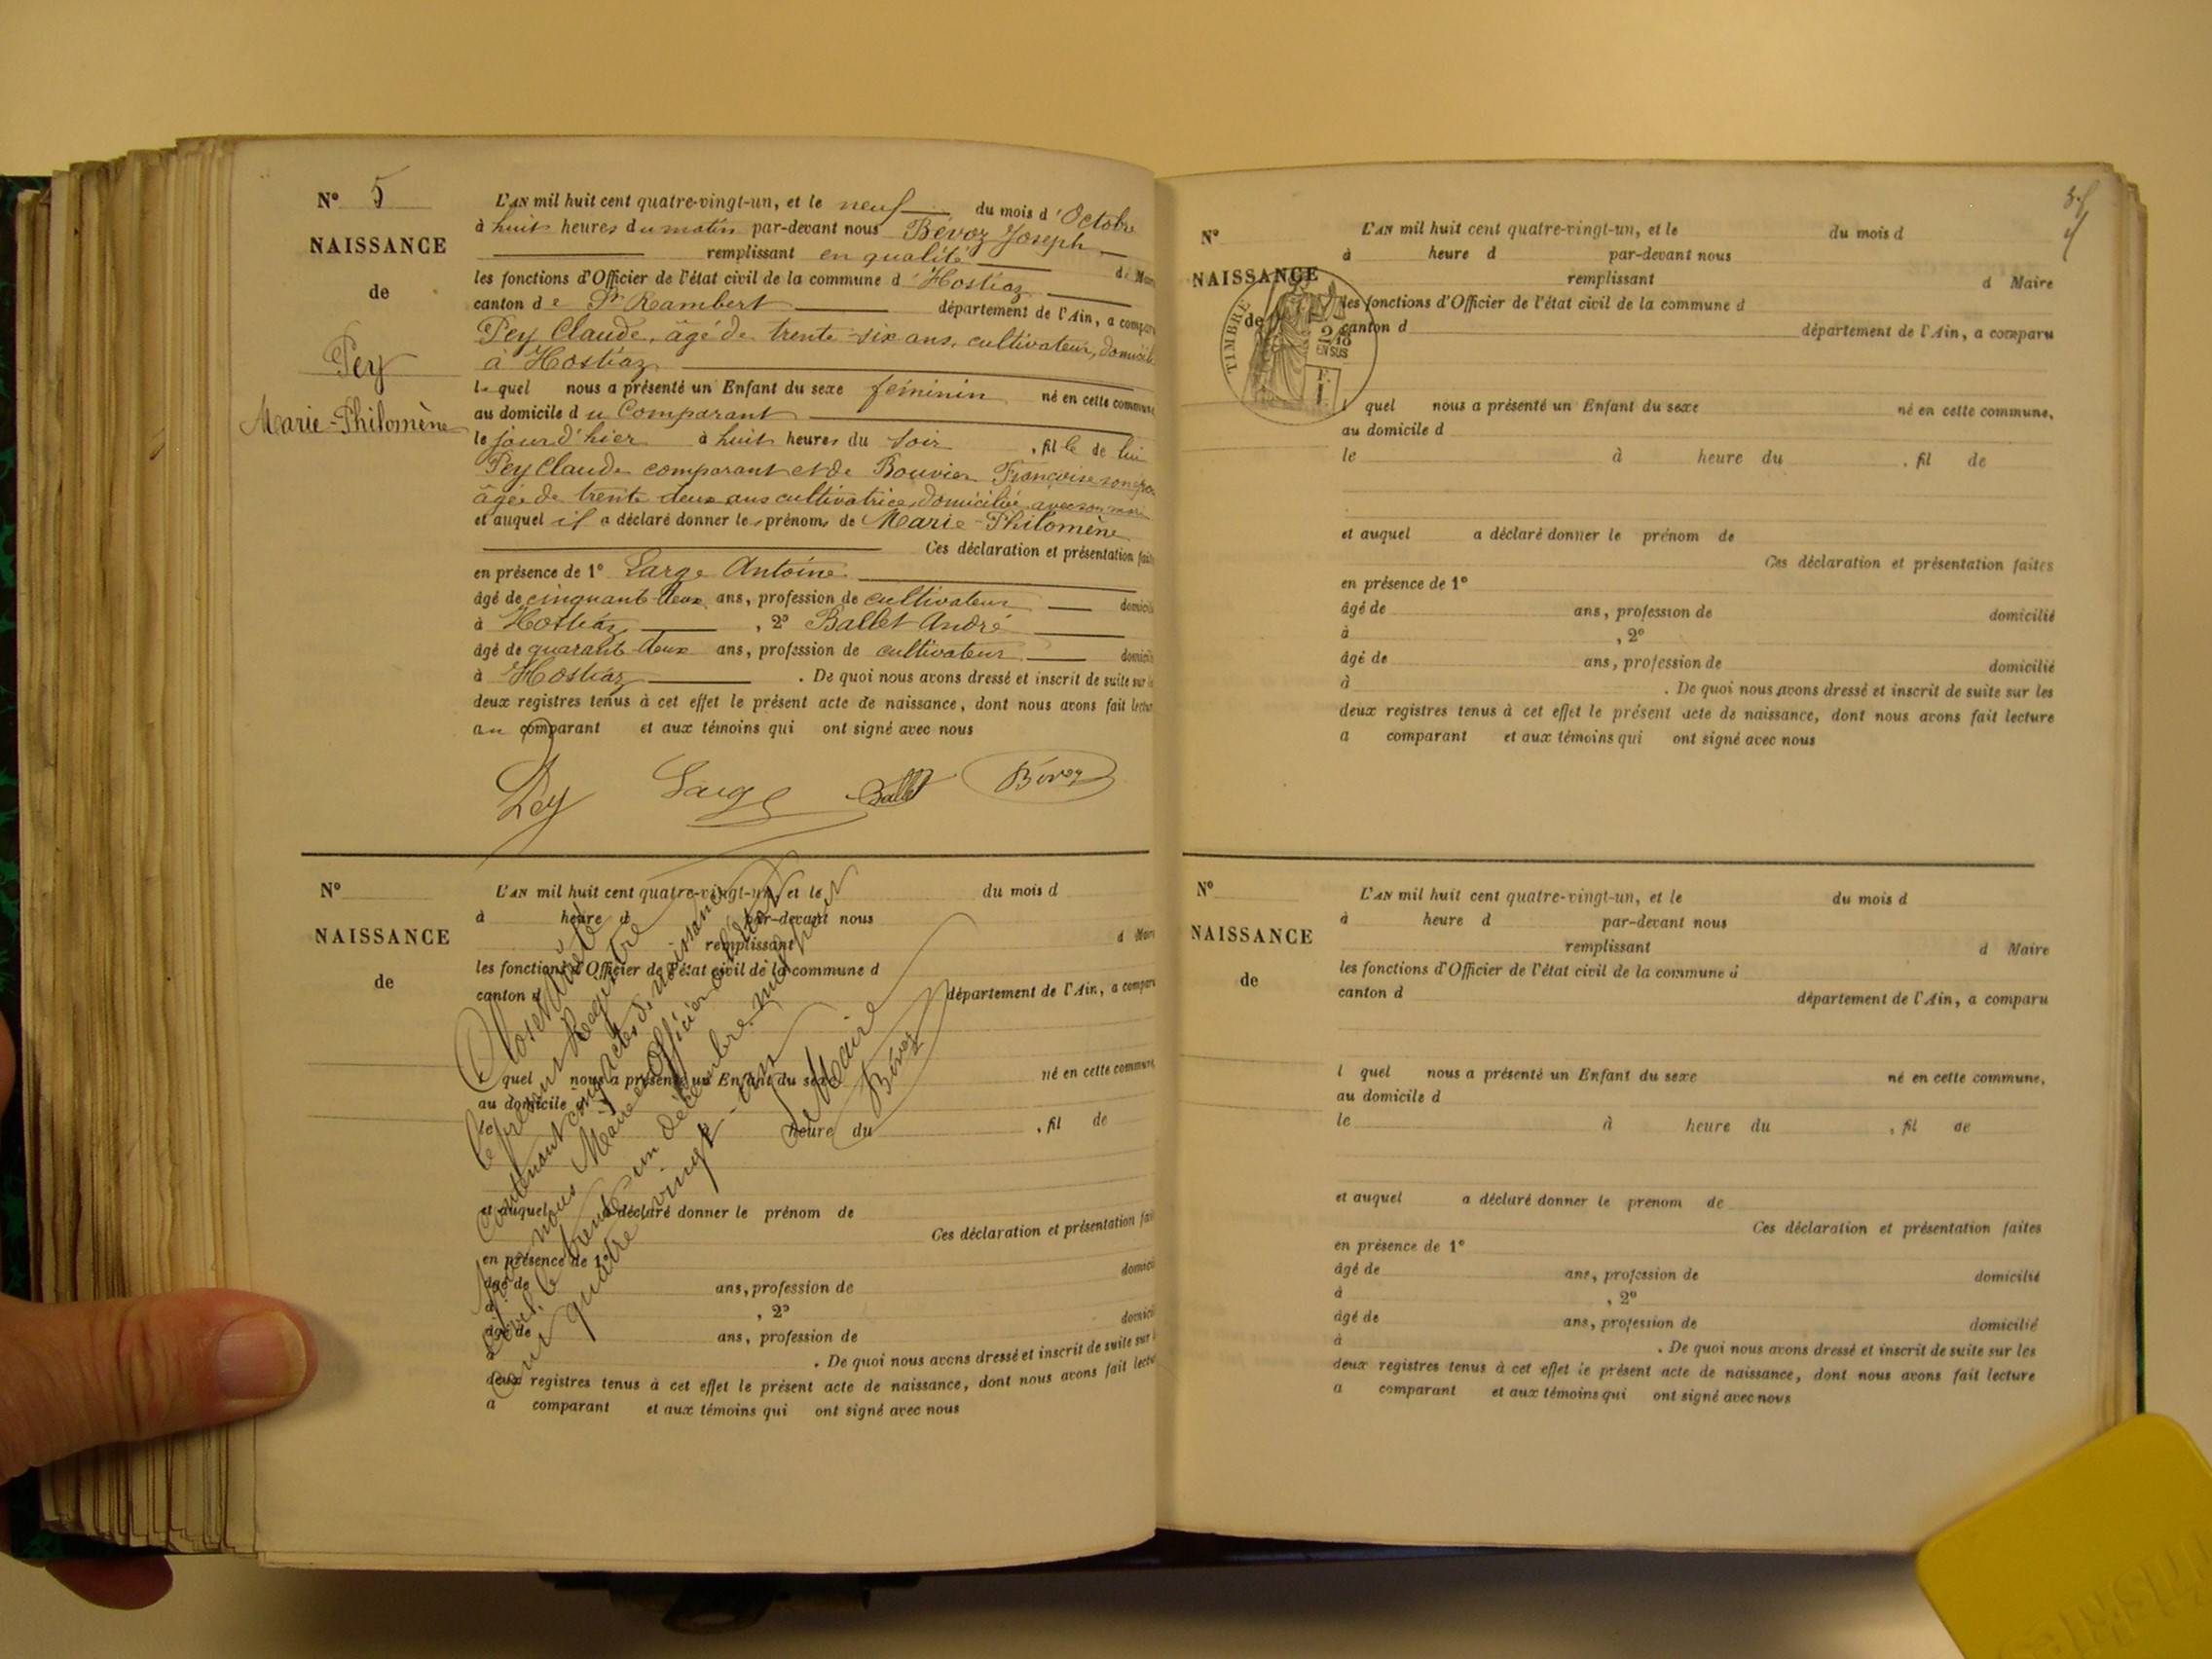 N° 5
NAISSANCE
de
Pey
Marie-Philomène
L'AN mil huit cent quatre-vingt-un, et le neuf du mois d'Octobre
à huit heures du matin par-devant nous Bévoz Joseph
remplissant en qualité de Mair
les fonctions d'Officier de l'état civil de la commune d'Hostiaz
canton de St Rambert département de l'Ain, a compar
Pey Claude, âgé de trente-six ans, cultivateur, domicilié
à Hostiaz
lequel nous a présenté un Enfant du sexe féminin né en cette commune,
au domicile du Comparant
le jourd'hier à huit heures du soir, fille de lui
Pey Claude comparant et de Bouvier Françoise son
âgée de trente deux ans cultivatrice, domiciliée avec son mari
et auquel il a déclaré donner les prénoms de Marie-Philomène
Ces déclaration et présentation fait
en présence de 1° Large Antoine
âgé de cinquante deux ans, profession de cultivateur domicil
à Hostiaz, 2° Ballet André
âgé de quarante deux ans, profession de cultivateur domicil
à Hostiaz. De quoi nous avons dressé et inscrit de suite sur
deux registres tenus à cet effet le présent acte de naissance, dont nous avons fait lectur
au comparant et aux témoins qui ont signé avec nous
Pey Large Ballet Bévoz
N°
NAISSANCE
de
L'AN mil huit cent quatre-vingt-un, et le du mois d
à heure d par-devant nous
remplissant d Mair
les fonctions d'Officier de l'état civil de la commune d
canton d département de l'Ain, a compar
l quel nous a présenté un Enfant du sexe né en cette commune,
au domicile d
le à heure du , fil de
et auquel a déclaré donner le prénom de
Ces déclaration et présentation fai
en présence de 1°
âgé de ans, profession de domicil
à , 2°
âgé de ans, profession de domicil
à . De quoi nous avons dressé et inscrit de suite sur
deux registres tenus à cet effet le présent acte de naissance, dont nous avons fait lectu
a comparant et aux témoins qui ont signé avec nous
Clos et arrêté
le présent Registre
Contenant cinq actes de naissance
par nous Maire Officier de l'état
civil, le trente-un décembre mil huit
cent quatre-vingt-un
Le Maire
Bévoz
N°
NAISSANCE
de
TIMBRE
2/10
EN SUS
L'AN mil huit cent quatre-vingt-un, et le du mois d
à heure d par-devant nous
remplissant d Maire
les fonctions d'Officier de l'état civil de la commune d
canton d département de l'Ain, a comparu
l quel nous a présenté un Enfant du sexe né en cette commune,
au domicile d
le à heure du , fil de
et auquel a déclaré donner le prénom de
Ces déclaration et présentation faites
en présence de 1°
âgé de ans, profession de domicilié
à , 2°
âgé de ans, profession de domicilié
à . De quoi nous avons dressé et inscrit de suite sur les
deux registres tenus à cet effet le présent acte de naissance, dont nous avons fait lecture
a comparant et aux témoins qui ont signé avec nous
N°
NAISSANCE
de
L'AN mil huit cent quatre-vingt-un, et le du mois d
à heure d par-devant nous
remplissant d Maire
les fonctions d'Officier de l'état civil de la commune d
canton d département de l'Ain, a comparu
l quel nous a présenté un Enfant du sexe né en cette commune,
au domicile d
le à heure du , fil de
et auquel a déclaré donner le prénom de
Ces déclaration et présentation faites
en présence de 1°
âgé de ans, profession de domicilié
à , 2°
âgé de ans, profession de domicilié
à . De quoi nous avons dressé et inscrit de suite sur les
deux registres tenus à cet effet le présent acte de naissance, dont nous avons fait lecture
a comparant et aux témoins qui ont signé avec nous